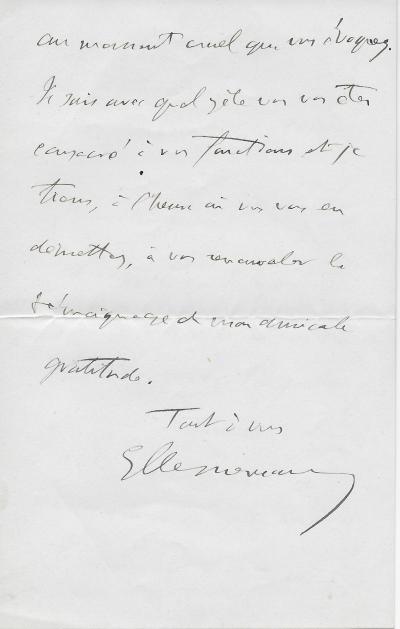 au moment cruel que vous évoquez.
Je sais avec quel zèle vous vous êtes
consacré à vos fonctions et je
tiens, à l'heure où vous vous en
démettez, à vous renouveler le
témoignage de mon amicale
gratitude.
Tout à vous